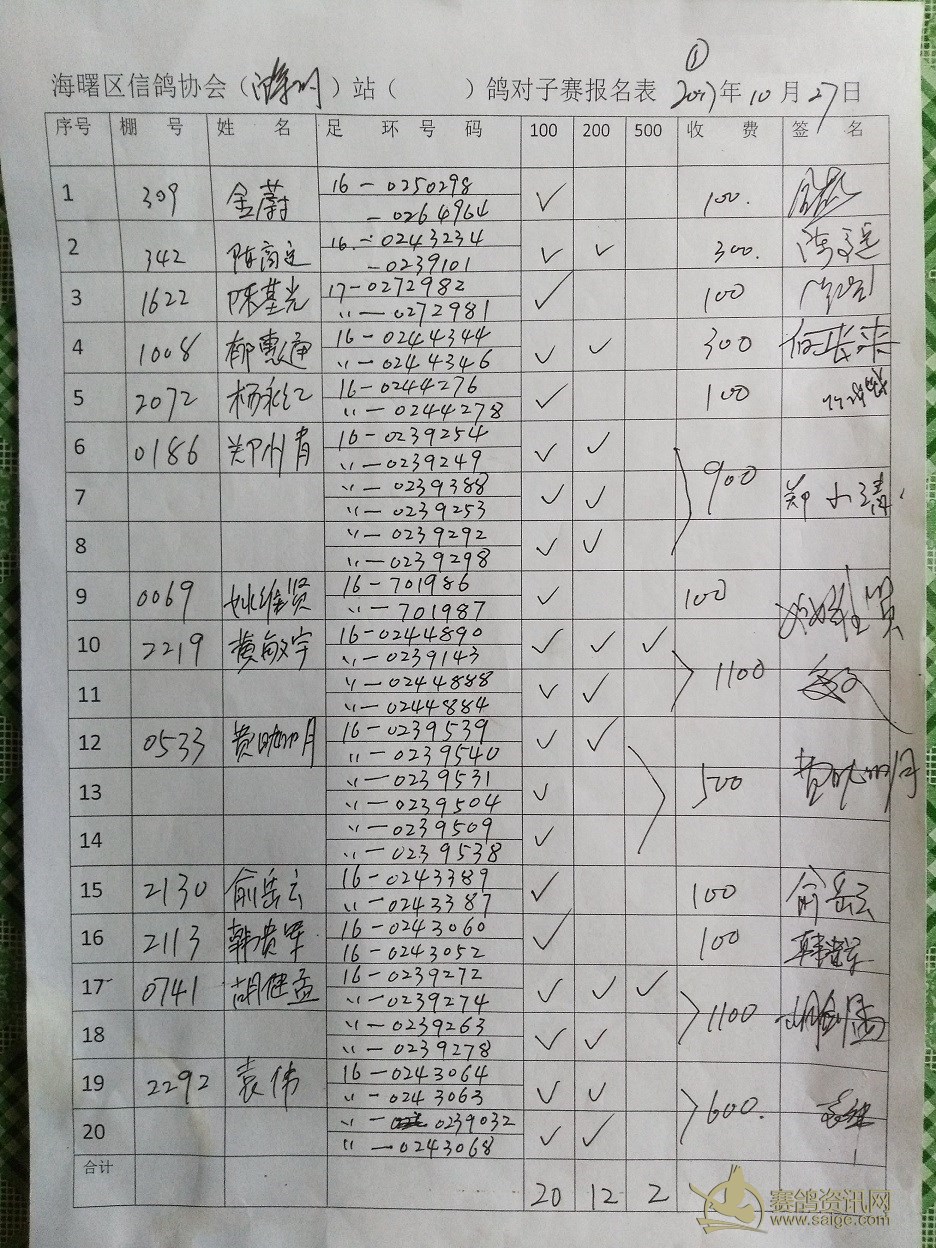 ①
海曙区信鸽协会（）站（ ）鸽对子赛报名表 2017年10月27日
序号 棚号 姓名 足环号码 100 200 500 收费 签名
1 309 金蔚 16-0250298 ✓ 100.
-0264964
2 342 16-0243234 ✓ ✓ 300.
-0239101
3 1622 陈基光 17-0272982 ✓ 100
〃-0272981
4 1008 郁惠通 16-0244344 ✓ ✓ 300
〃-0244346
5 2072 杨永红 16-0244276 ✓ 100
〃-0244278
6 0186 16-0239254 ✓ ✓
〃-0239249
7 〃-0239388 ✓ ✓ 900 郑小清
〃-0239253
8 〃-0239292 ✓ ✓
〃-0239298
9 0069 姚维贤 16-701986 ✓ 100 姚维贤
〃-701987
10 2219 黄敏宇 16-0244890 ✓ ✓ ✓ 1100
〃-0239143
11 〃-0244888 ✓ ✓
〃-0244884
12 0533 16-0239539 ✓ ✓
〃-0239540
13 〃-0239531 ✓ 500
〃-0239504
14 〃-0239509 ✓
〃-0239538
15 2130 俞岳云 16-0243389 ✓ 100 俞岳云
〃-0243387
16 2113 韩贵军 16-0243060 ✓ 100 韩贵军
16-0243052
17 0741 胡健孟 16-0239272 ✓ ✓ ✓ 1100
〃-0239274
18 〃-0239263 ✓ ✓
〃-0239278
19 2292 袁伟 16-0243064 ✓ ✓ 600. 袁伟
〃-0243063
20 〃-0239032 ✓ ✓
〃-0243068
合计 20 12 2
赛鸽资讯网
www.saige.com